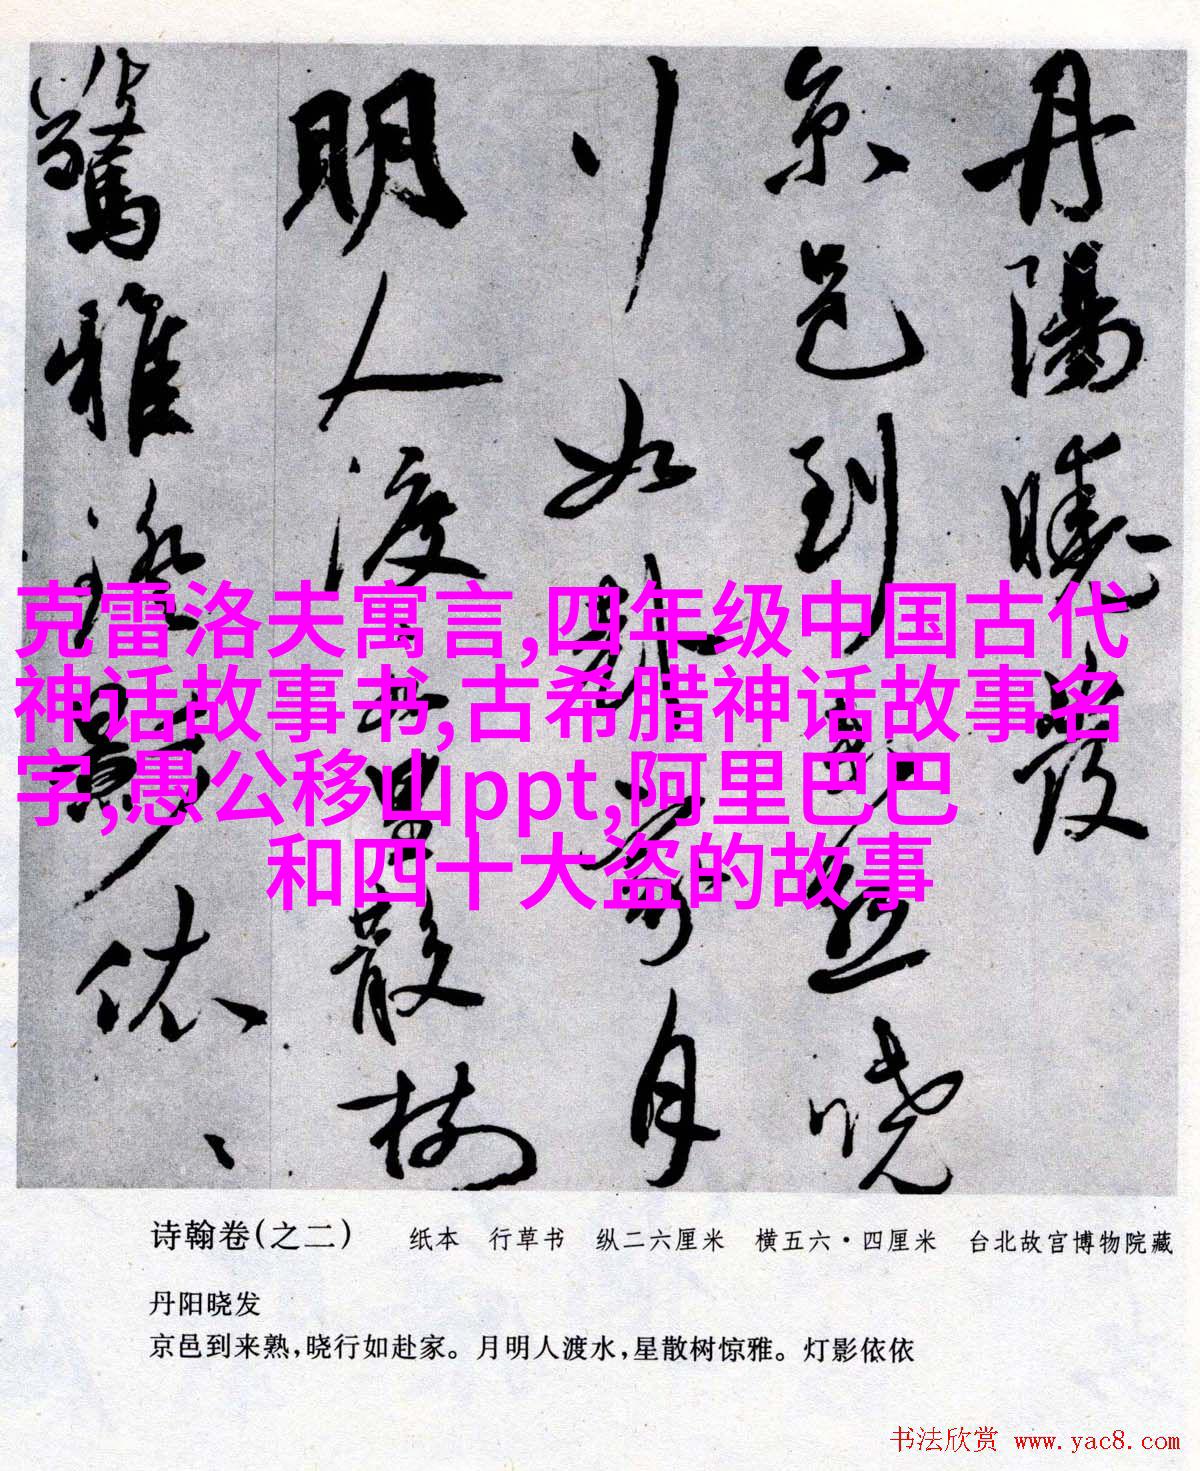 丹陽曉發
京邑到來熟曉
行如赴家月
明人渡水星散樹
驚雅燈影依依
克雷洛夫寓言,四年级中国古代
神话故事书,古希腊神话故事名
字,愚公移山ppt,阿里巴巴
和四十大盗的故事
诗翰卷(之二) 纸本 行草书 纵二六厘米 横五六·四厘米 台北故宫博物院藏
丹阳晓发
京邑到来熟,晓行如赴家。月明人渡水,星散树惊雅。灯影依依
书法欣赏 www.yac8.com